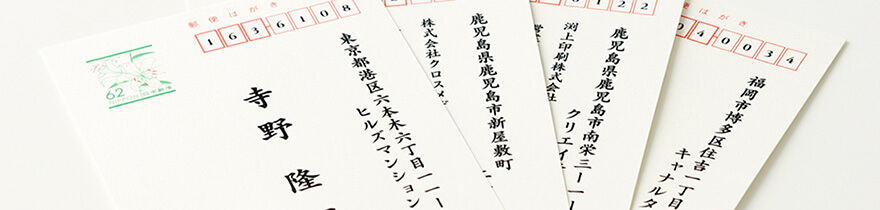 郵便はがき
1636108
62
NIPPON 日本郵便
東京都港区六本木六丁目一一一
ヒルズマンション
寺野 隆
鹿児島県鹿児島市新屋敷町
株式会社クロスメ
0122
鹿児島県鹿児島市南栄三一一一
渕上印刷株式会社
クリエイ
便はがき
040034
福岡市博多区住吉一丁目
キャナルタ